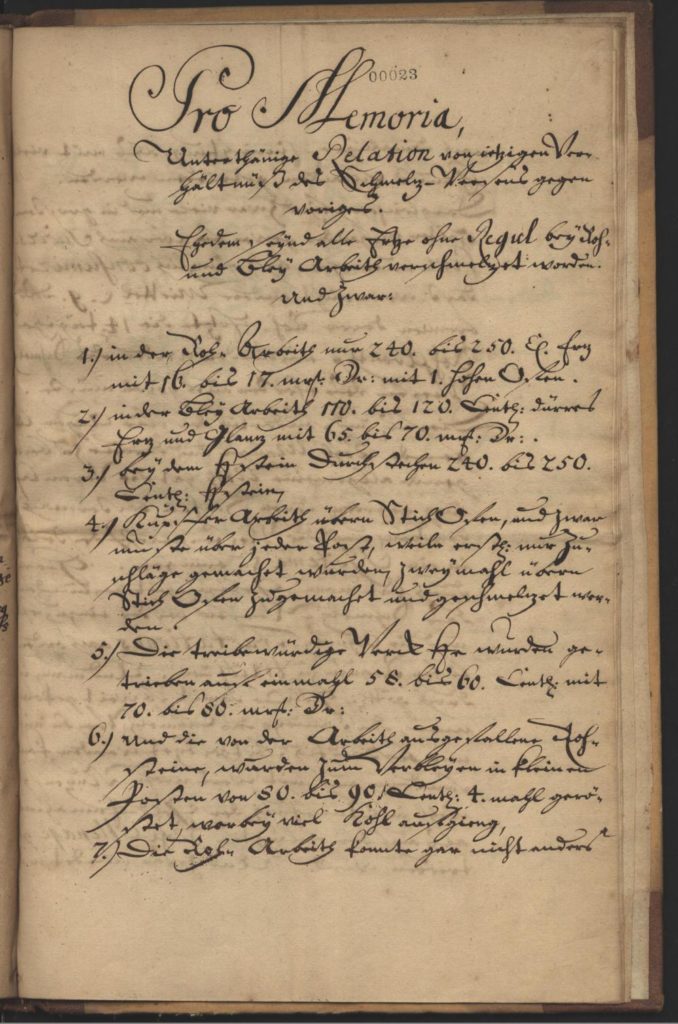 00023
Pro Memoria,
Unterthänige Relation von ietzigen Ver-
hältnüß des Schmeltz-Wesens gegen
voriges.
Ehedem seynd alle Ertze ohne Regul bey Roh-
und Bley Arbeith verschmeltzet worden.
Und zwar:
1.) in der Roh- Arbeith nur 240. bis 250. C. Ertz
mit 16. bis 17. Dr: mit 1. hohen Ofen.
2.) in der Bley Arbeith 110. bis 120. Centh: dürres
Ertz und Glantz mit 65. bis 70. Dr:.
3.) bey dem durchstechen 240. bis 250.
Centh:
4.) Kupffer Arbeith übern Stich Ofen, und zwar
muste über jeder Post, weiln ersth: nur Zu-
schläge gemachet wurden, zweymahl übern
Stich Ofen zugemachet und geschmeltzet wer-
den.
5.) Die treibewürdige Werck wurden ge-
trieben auff einmahl 58. bis 60. Centh: mit
70. bis 80. Dr:
6.) Und die von der Arbeith ausgefallene Roh-
steine, wurden zum Verbleyen in kleinen
Posten von 80. bis 90. Centh: 4. mahl gerö-
stet, worbey viel Kohl auffgieng,
7.) Die Roh- Arbeith konnte gar nicht anders